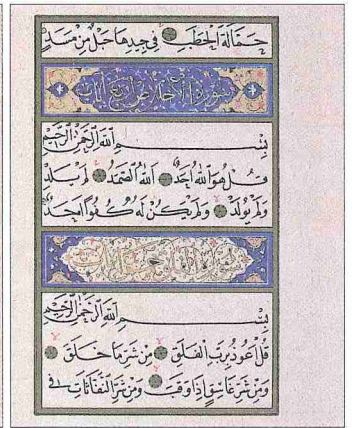 حَمَّالَةَ الْحَطَبِ فِي جِيدِهَا حَبْلٌ مِنْ مَسَدٍ
سورة الاخلاص اربع ايات
بِسْمِ اللهِ الرَّحْمٰنِ الرَّحِيمِ
قُلْ هُوَ اللهُ اَحَدٌ اَللهُ الصَّمَدُ لَمْ يَلِدْ
وَلَمْ يُولَدْ وَلَمْ يَكُنْ لَهُ كُفُوًا اَحَدٌ
بِسْمِ اللهِ الرَّحْمٰنِ الرَّحِيمِ
قُلْ اَعُوذُ بِرَبِّ الْفَلَقِ مِنْ شَرِّ مَا خَلَقَ
وَمِنْ شَرِّ غَاسِقٍ اِذَا وَقَبَ وَمِنْ شَرِّ النَّفَّاثَاتِ فِي